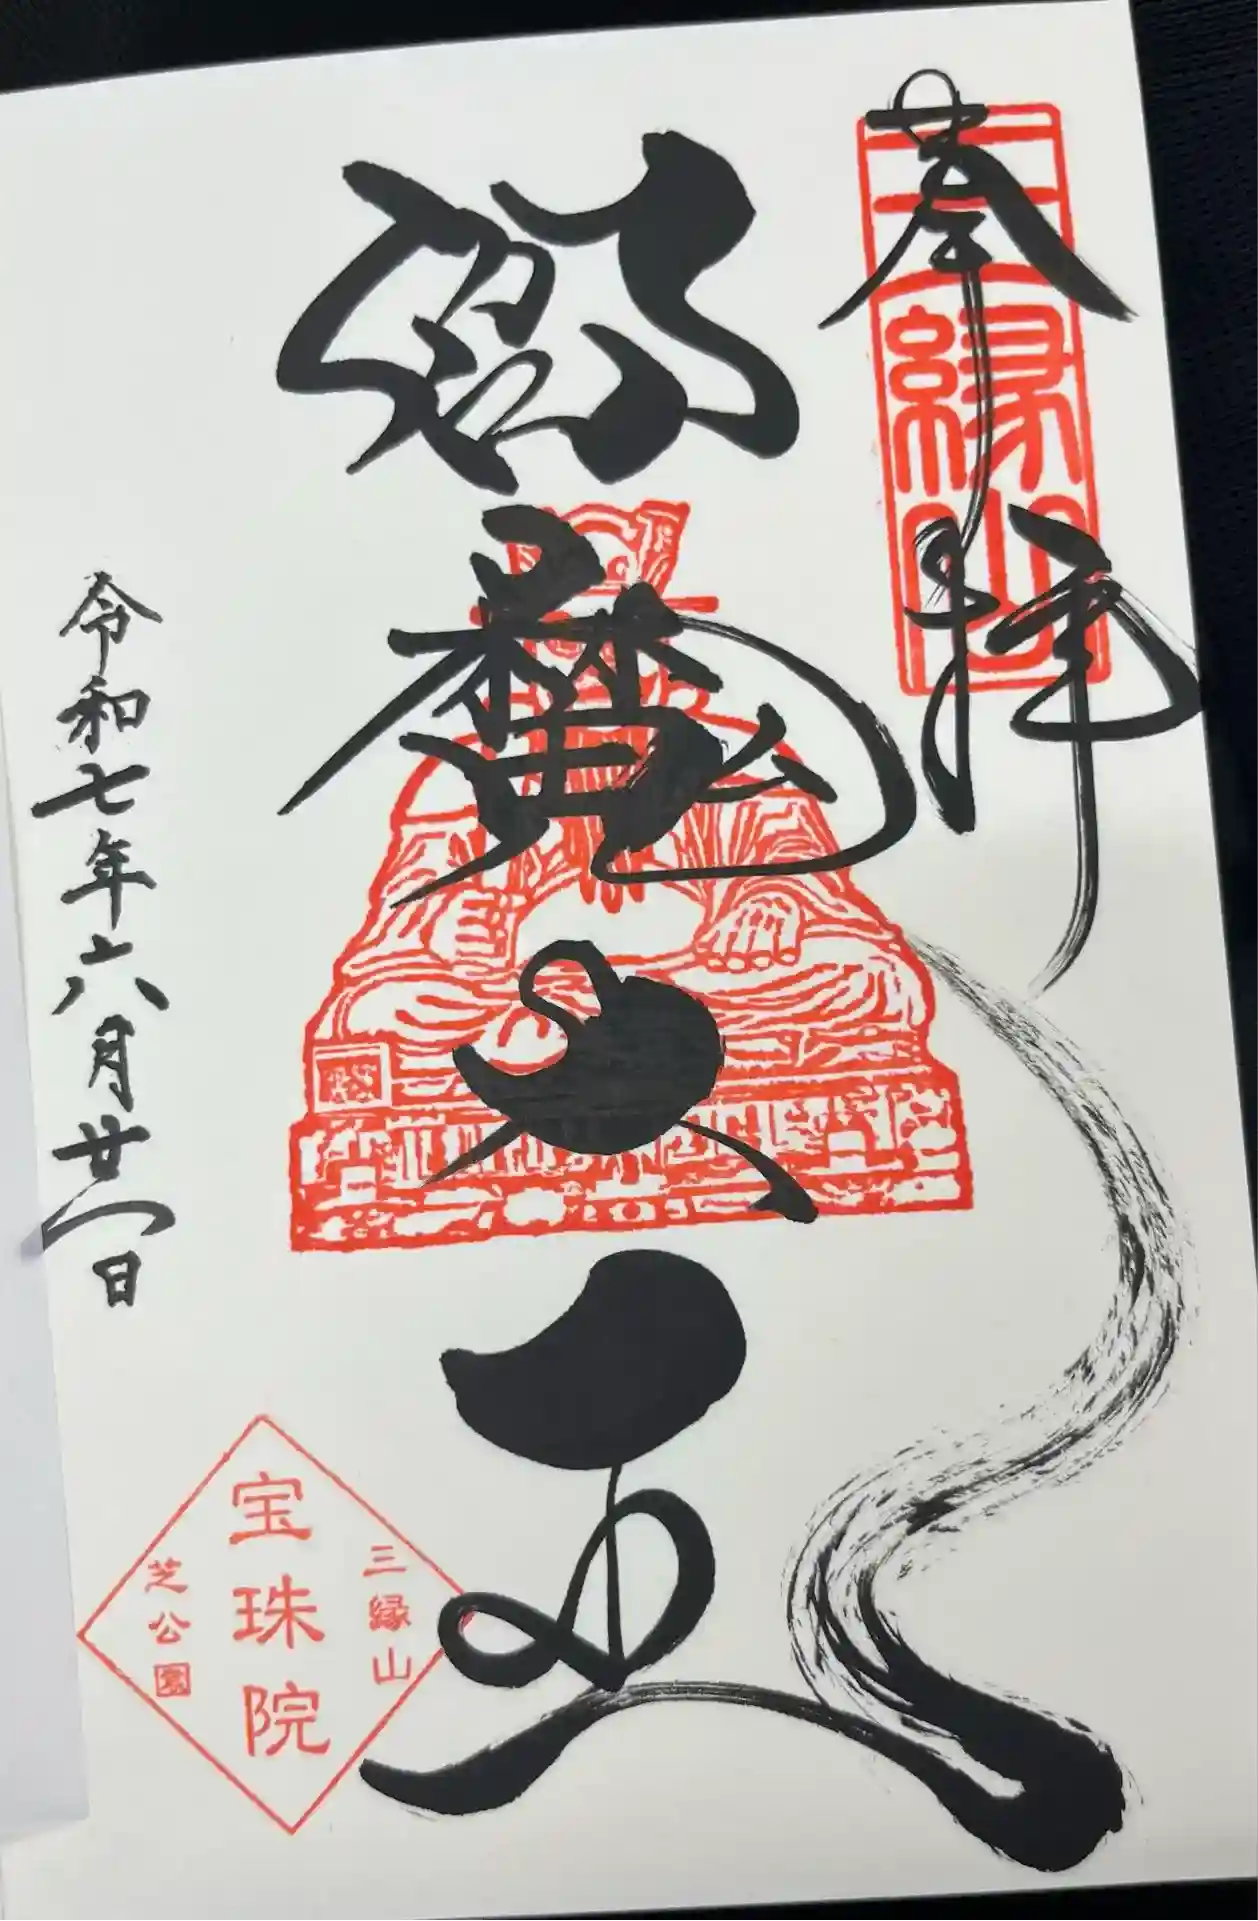 奉拝
三縁山
閻魔大王
令和七年六月廿一日
三縁山
宝珠院
芝公園